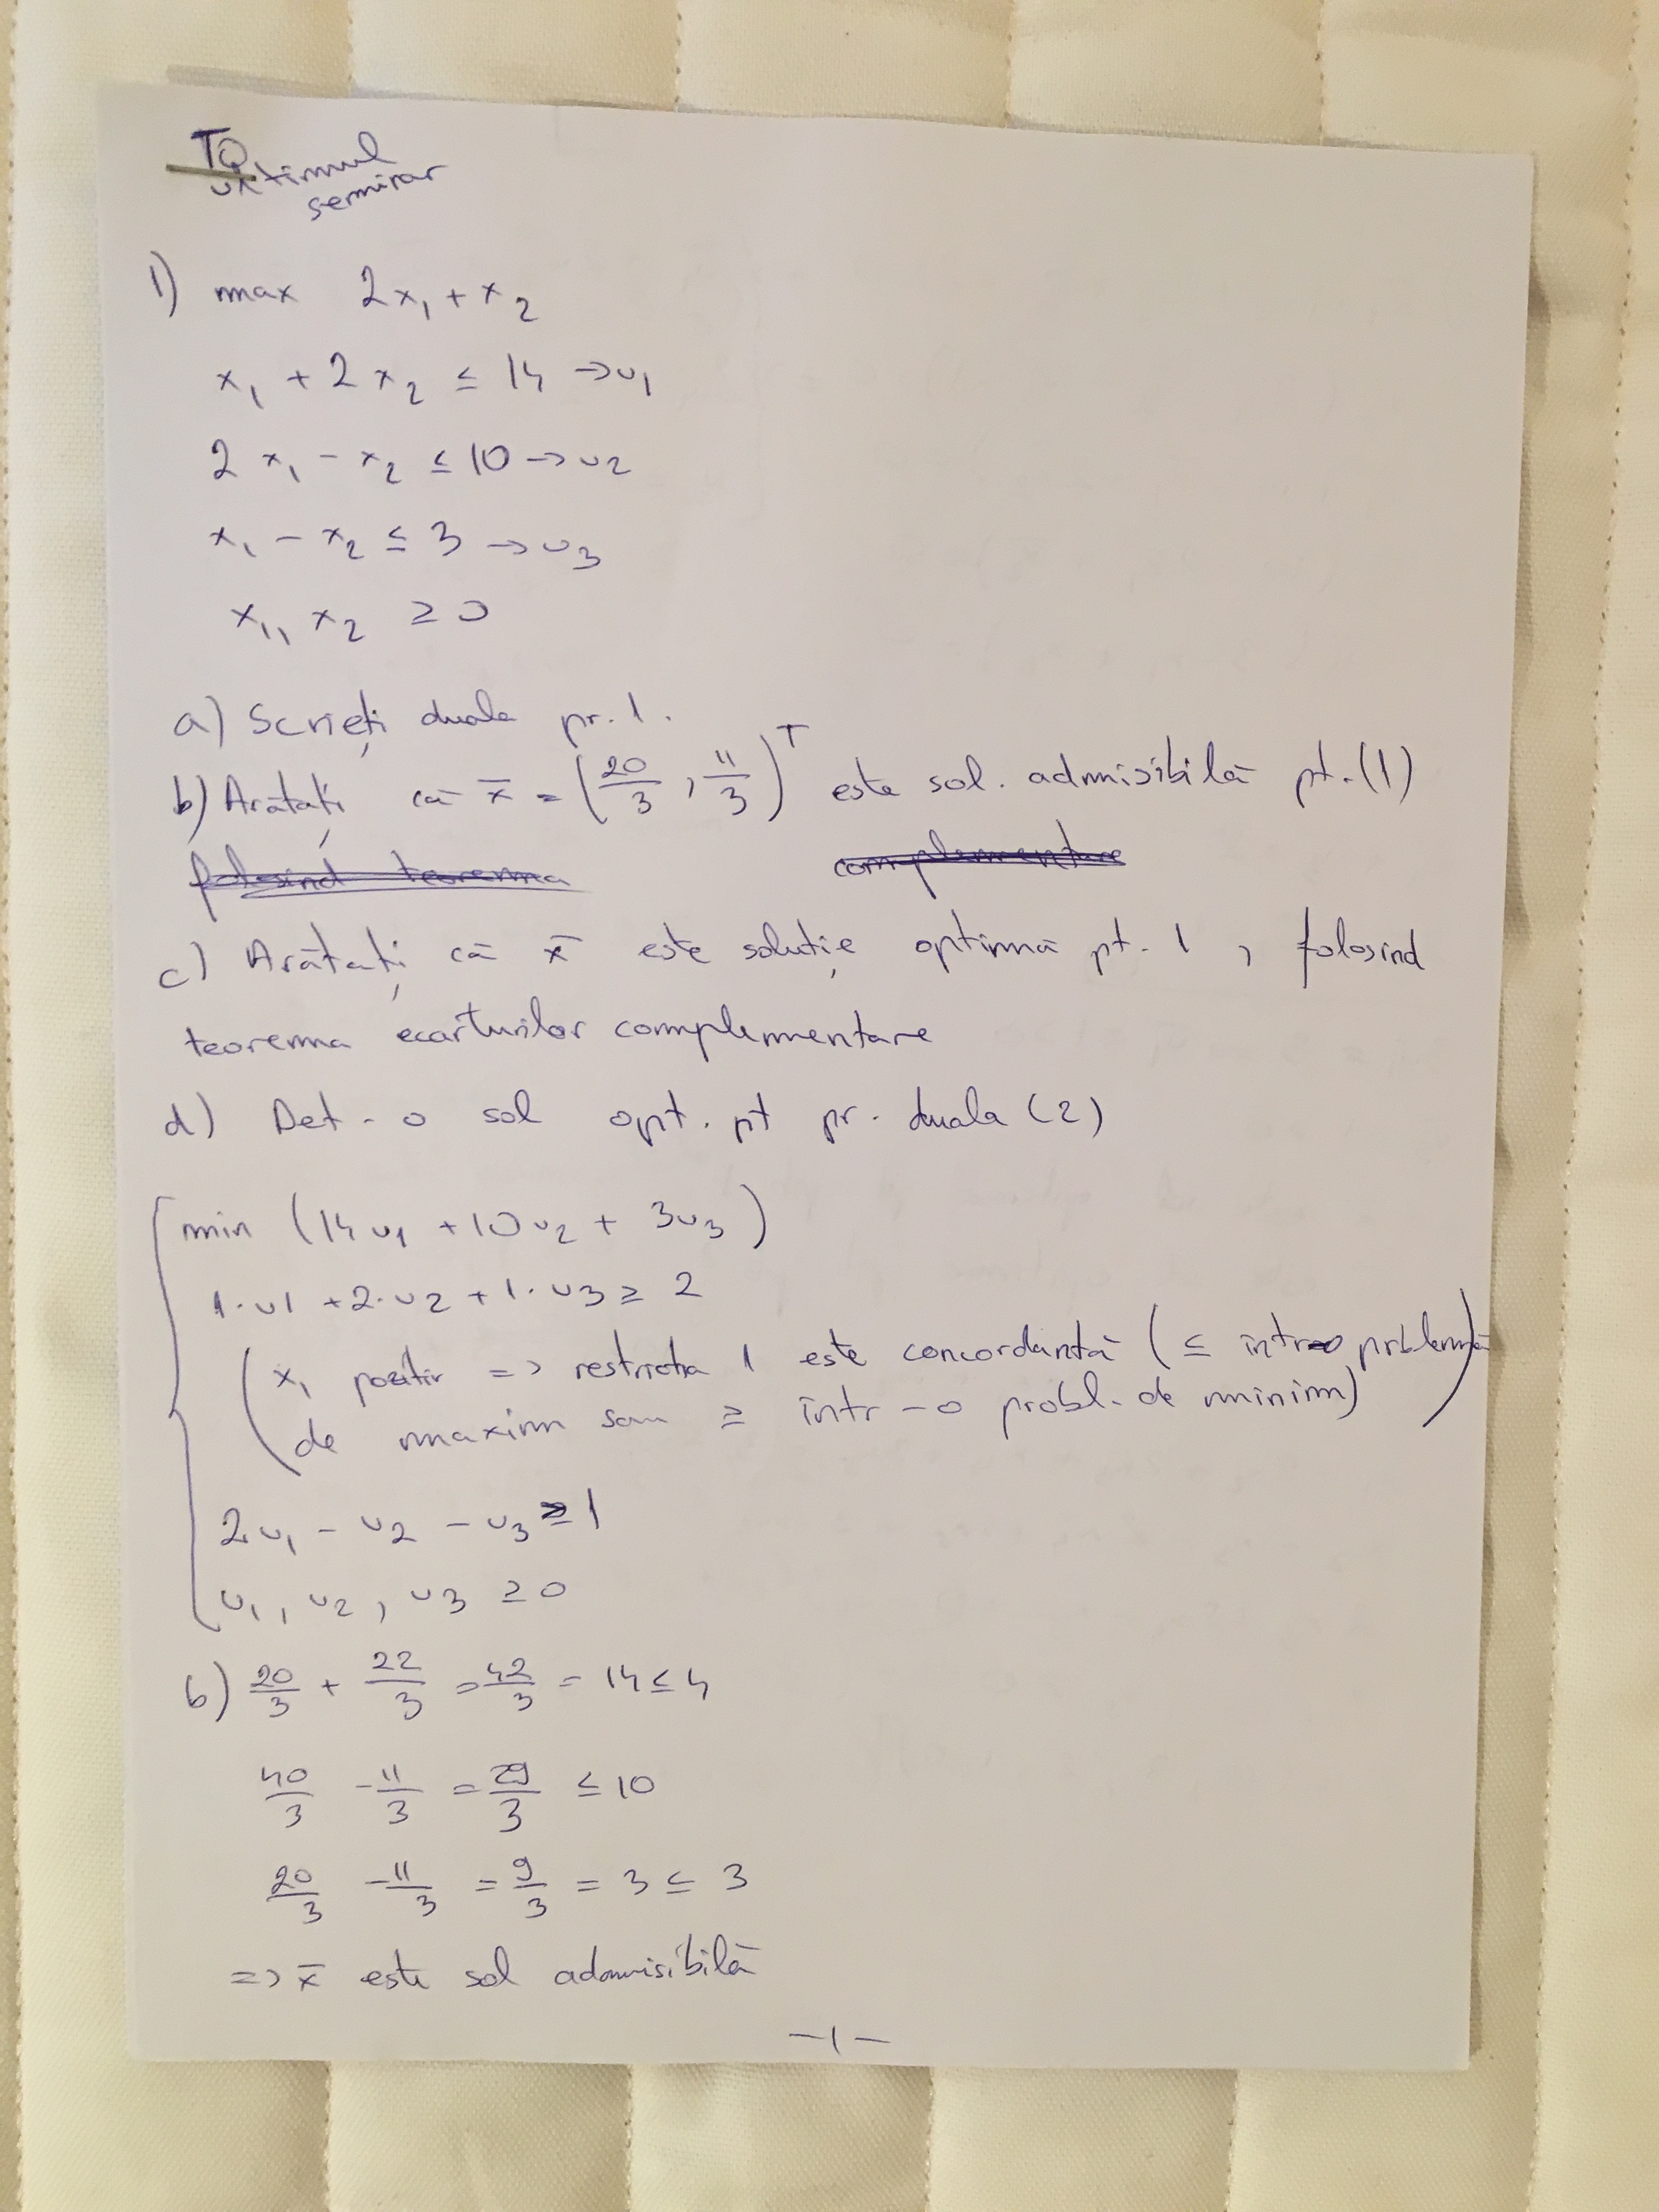 TO
ultimul
seminar
1) max 2x₁ + x₂
x₁ + 2x₂ ≤ 14 → u₁
2x₁ - x₂ ≤ 10 → u₂
x₁ - x₂ ≤ 3 → u₃
x₁, x₂ ≥ 0
a) Scrieți duala pr. 1.
b) Arătați că x̄ = (20/3, 11/3)ᵀ este sol. admisibilă pt. (1)
folosind teorema complementare
c) Arătați că x̄ este soluție optimă pt. 1, folosind
teorema ecarturilor complementare
d) Det. o sol opt. pt pr. duala (2)
min (14u₁ + 10u₂ + 3u₃)
1·u1 + 2·u2 + 1·u3 ≥ 2
(x₁ pozitiv => restricția 1 este concordantă (≤ într-o problemă
de maxim sau ≥ într-o probl. de minim))
2u₁ - u₂ - u₃ ≥ 1
u₁, u₂, u₃ ≥ 0
b) 20/3 + 22/3 = 42/3 = 14 ≤ 4
40/3 - 11/3 = 29/3 ≤ 10
20/3 - 11/3 = 9/3 = 3 ≤ 3
=> x̄ este sol admisibilă
-1-